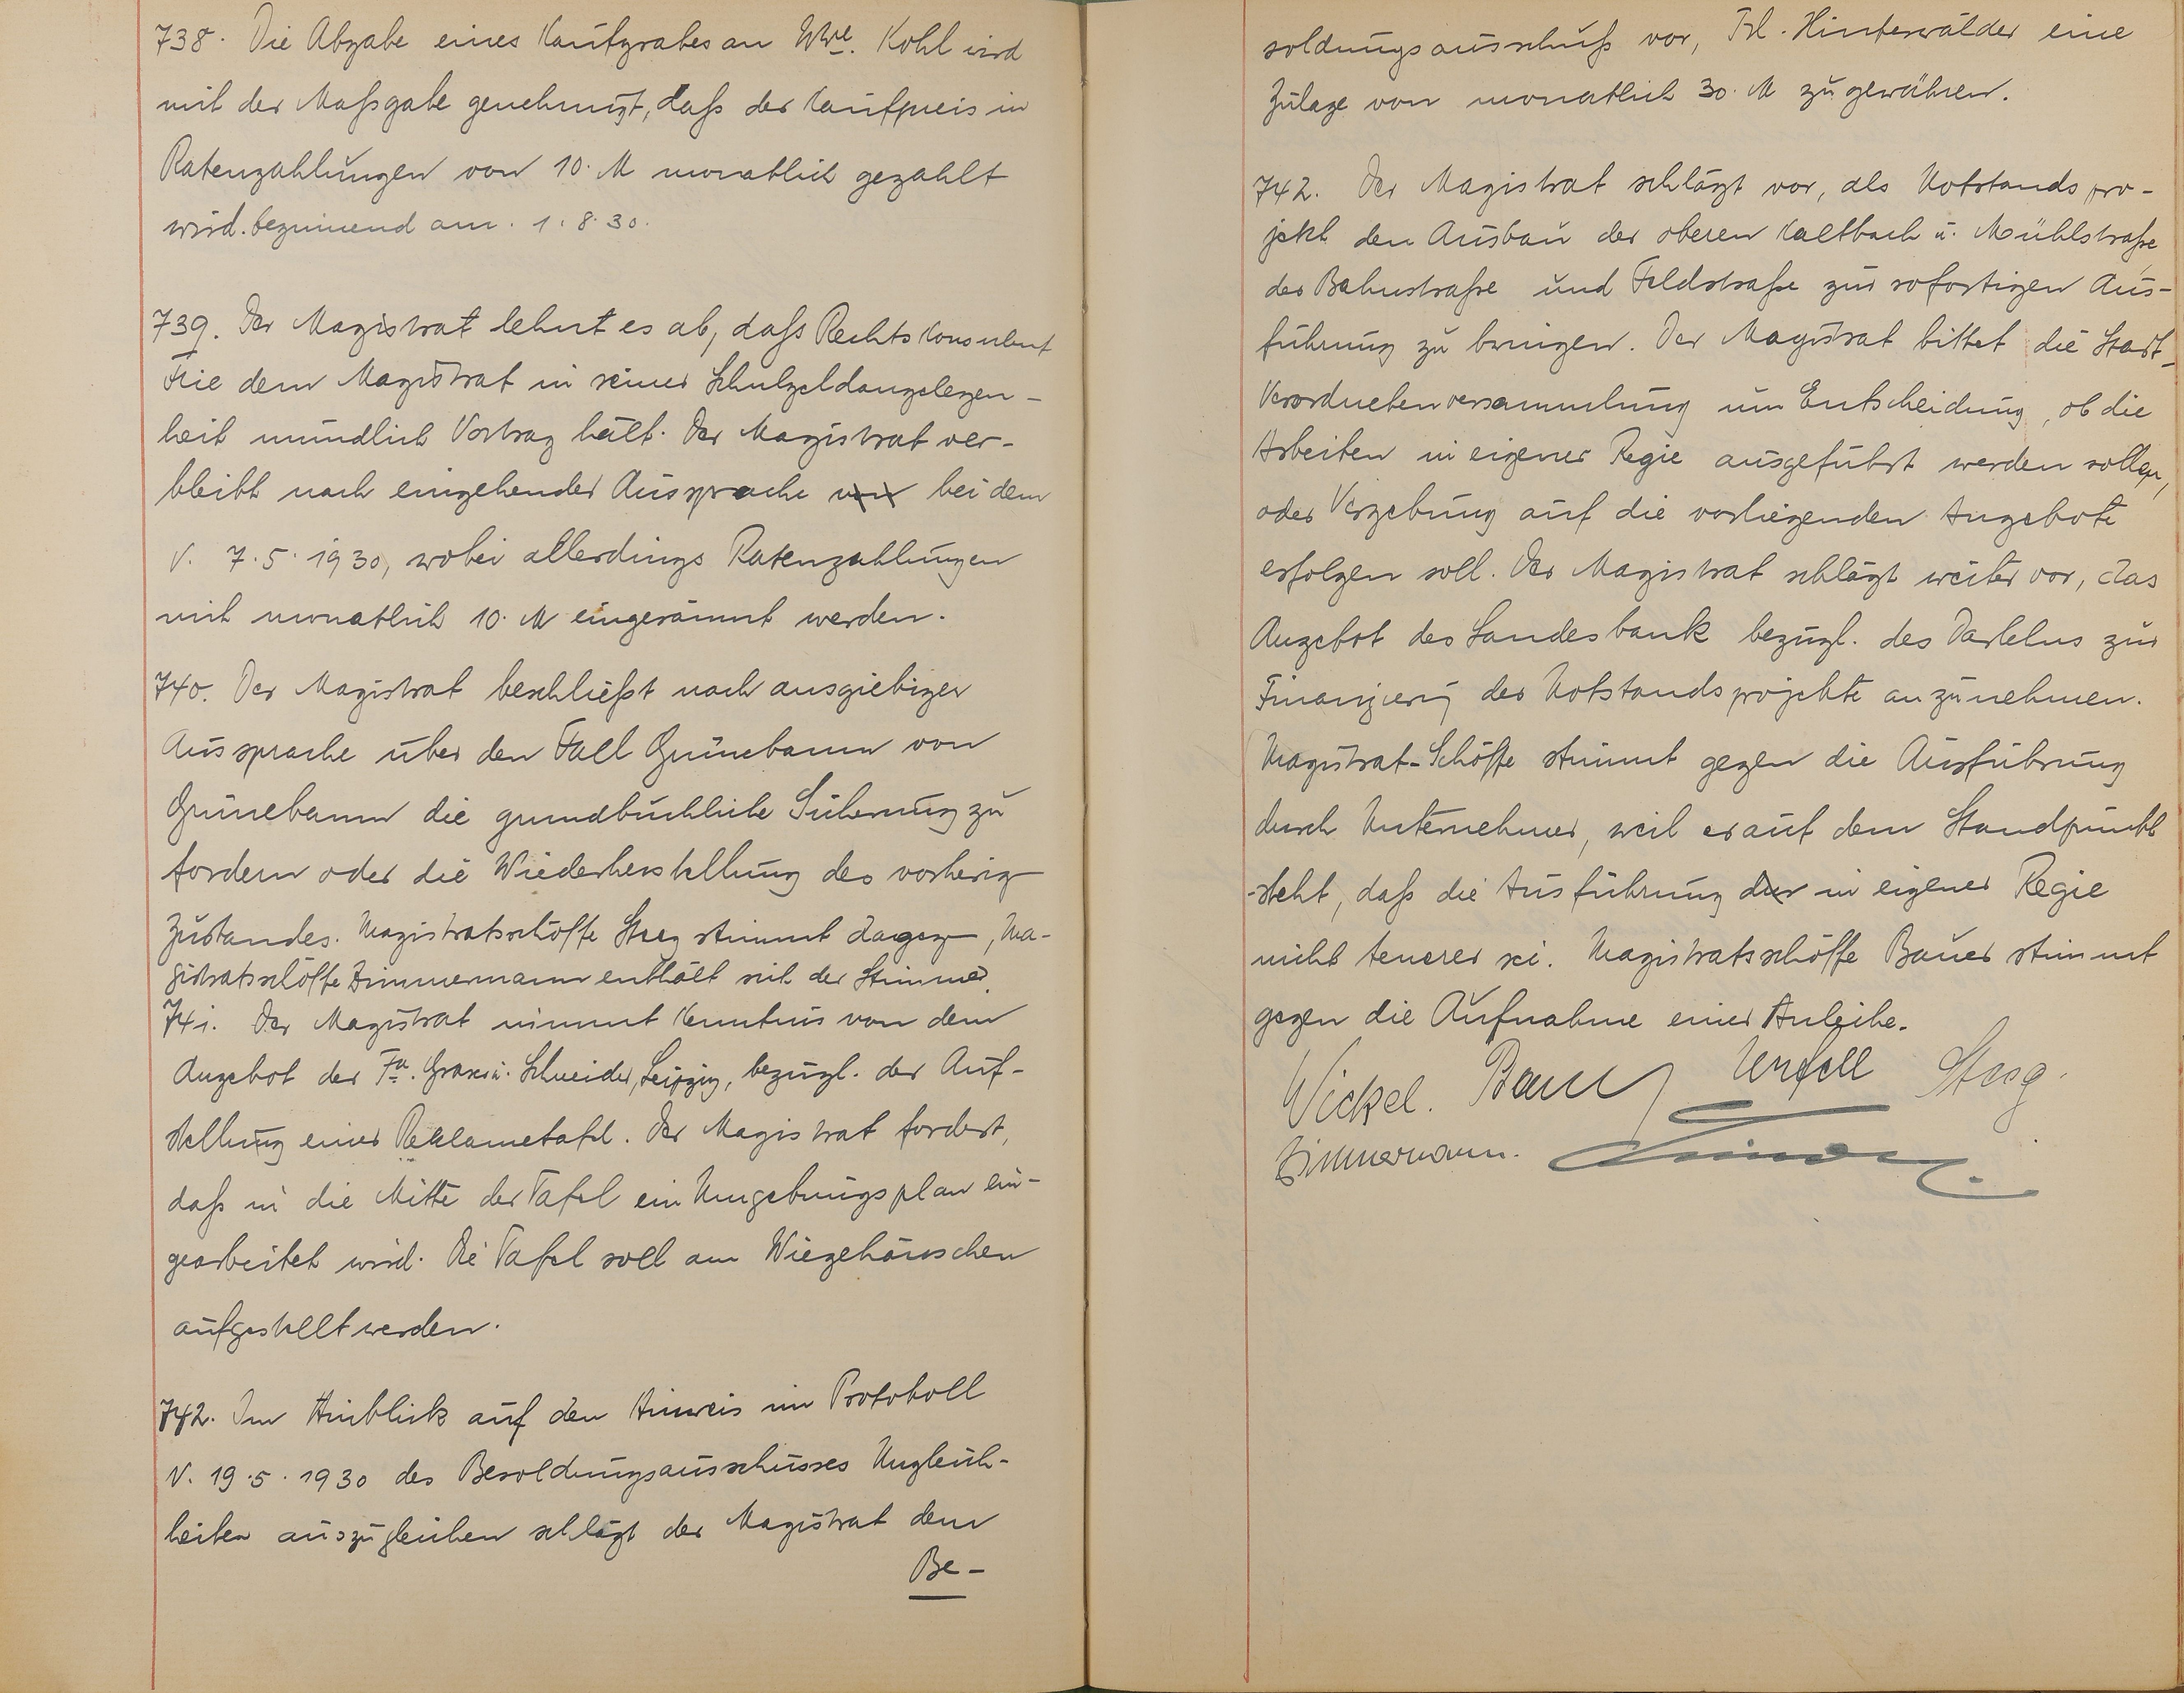 738. Die Abgabe eines Kaufgrabes an Wwe. Kohl wird
mit der Maßgabe genehmigt, daß der Kaufpreis in
Ratenzahlungen von 10. M monatlich gezahlt
wird. beginnend am. 1. 8. 30.
739. Der Magistrat lehnt es ab, daß Rechtskonsulent
dem Magistrat in seiner Schulgeldangelegen-
heit mündlich Vortrag hält. Der Magistrat ver-
bleibt nach eingehender Aussprache bei dem
v. 7. 5. 1930, wobei allerdings Ratenzahlungen
mit monatlich 10. M eingeräumt werden.
740. Der Magistrat beschließt nach ausgiebiger
Aussprache über den Fall Grünebaum von
Grünebaum die grundbuchliche Sicherung zu
fordern oder die Wiederherstellung des vorherig
Zustandes. Magistratsschöffe Steeg stimmt dagegen, Ma-
gistratsschöffe Zimmermann enthält sich der Stimme.
741. Der Magistrat nimmt Kenntnis von dem
Angebot der Fa. u. Schneider, Leipzig, bezügl. der Auf-
stellung einer Reklametafel. Der Magistrat fordert,
daß in die Mitte der Tafel ein Umgebungsplan ein-
gearbeitet wird. Die Tafel soll am Wiegehäuschen
aufgestellt werden.
742. Im Hinblick auf den Hinweis im Protokoll
v. 19. 5. 1930 des Besoldungsausschusses Ungleich-
heiten auszugleichen schlägt der Magistrat dem
Be-
soldungsausschuß vor, Frl. Hinterwälder eine
Zulage von monatlich 30. M zu gewähren.
742. Der Magistrat schlägt vor, als Notstandspro-
jekt den Ausbau der oberen Kaltbach u. Mühlstraße
der Bahnstraße und Feldstraße zur sofortigen Aus-
führung zu bringen. Der Magistrat bittet die Stadt-
Verordnetenversammlung um Entscheidung, ob die
Arbeiten in eigener Regie ausgeführt werden sollen,
oder Vergebung auf die vorliegenden Angebote
erfolgen soll. Der Magistrat schlägt weiter vor, das
Angebot der Landesbank bezügl. des Darlehns zur
Finanzierg des Notstandsprojekte anzunehmen.
Magistrat-Schöffe stimmt gegen die Ausführung
durch Unternehmer, weil er auf dem Standpunkt
steht, daß die Ausführung in eigener Regie
nicht teuerer sei. Magistratsschöffe Bauer stimmt
gegen die Aufnahme einer Anleihe.
Nickel. Bauer Steeg.
Zimmermann.